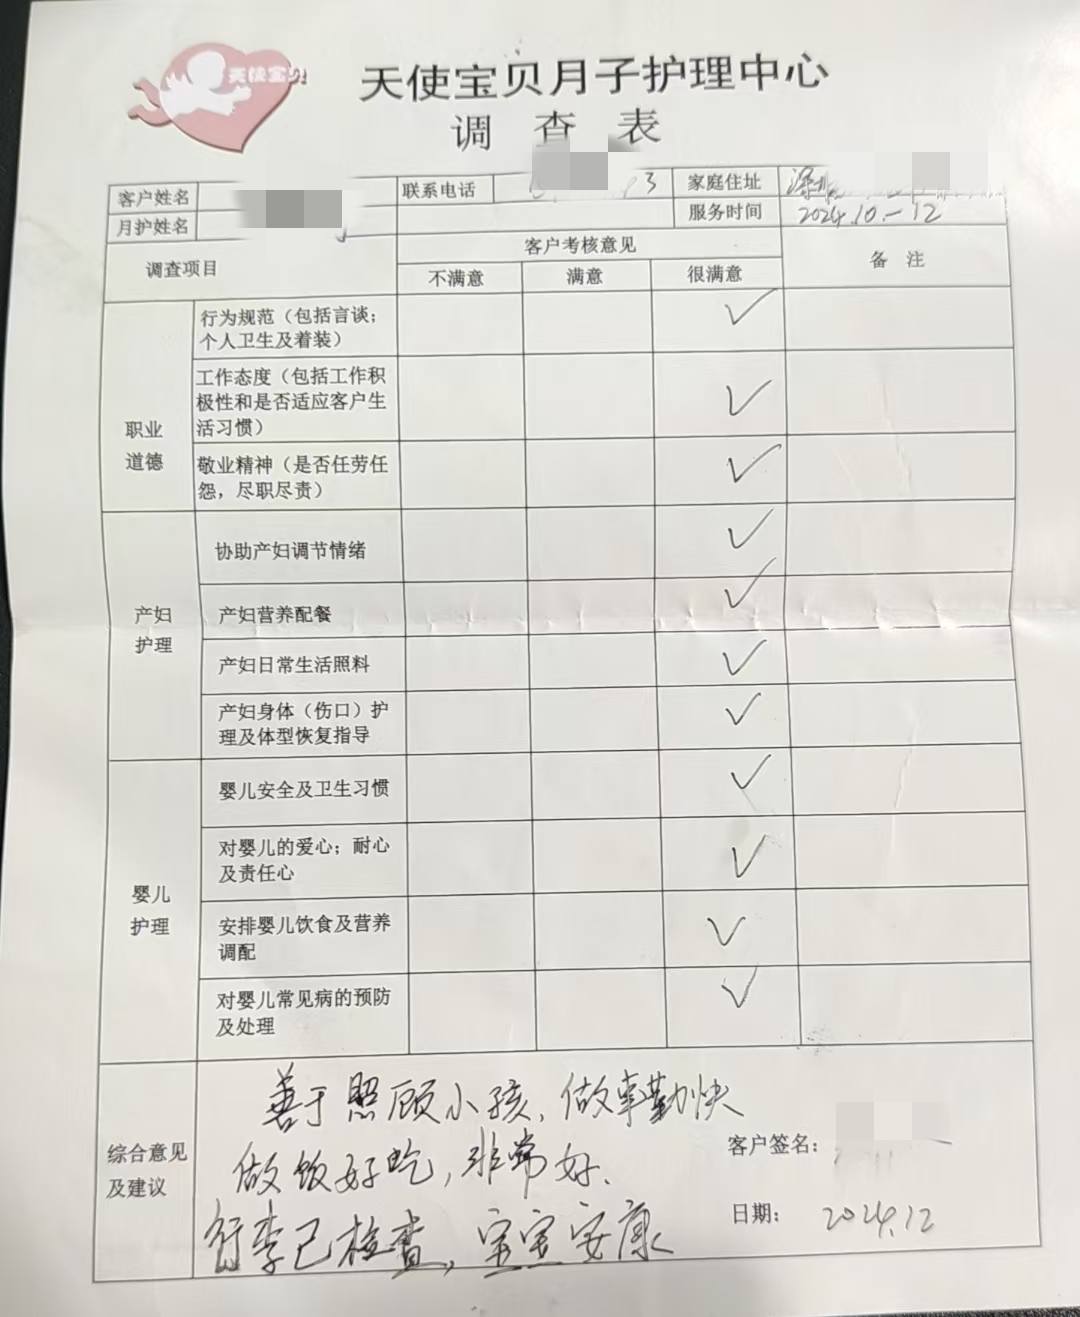 天使宝贝
天使宝贝月子护理中心
调查表
客户姓名 联系电话 3 家庭住址
月护姓名 服务时间 2024.10-12
调查项目 客户考核意见 备注
不满意 满意 很满意
职业
道德
行为规范（包括言谈；
个人卫生及着装） ✓
工作态度（包括工作积
极性和是否适应客户生
活习惯） ✓
敬业精神（是否任劳任
怨，尽职尽责） ✓
产妇
护理
协助产妇调节情绪 ✓
产妇营养配餐 ✓
产妇日常生活照料 ✓
产妇身体（伤口）护
理及体型恢复指导 ✓
婴儿
护理
婴儿安全及卫生习惯 ✓
对婴儿的爱心；耐心
及责任心 ✓
安排婴儿饮食及营养
调配 ✓
对婴儿常见病的预防
及处理 ✓
综合意见
及建议
善于照顾小孩、做事勤快
做饭好吃，非常好、
行李已检查，宝宝安康
客户签名：
日期： 2024.12